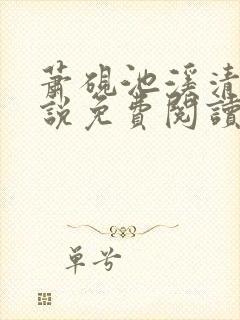 蕭硯池溪清
說免費閱讀
單兮